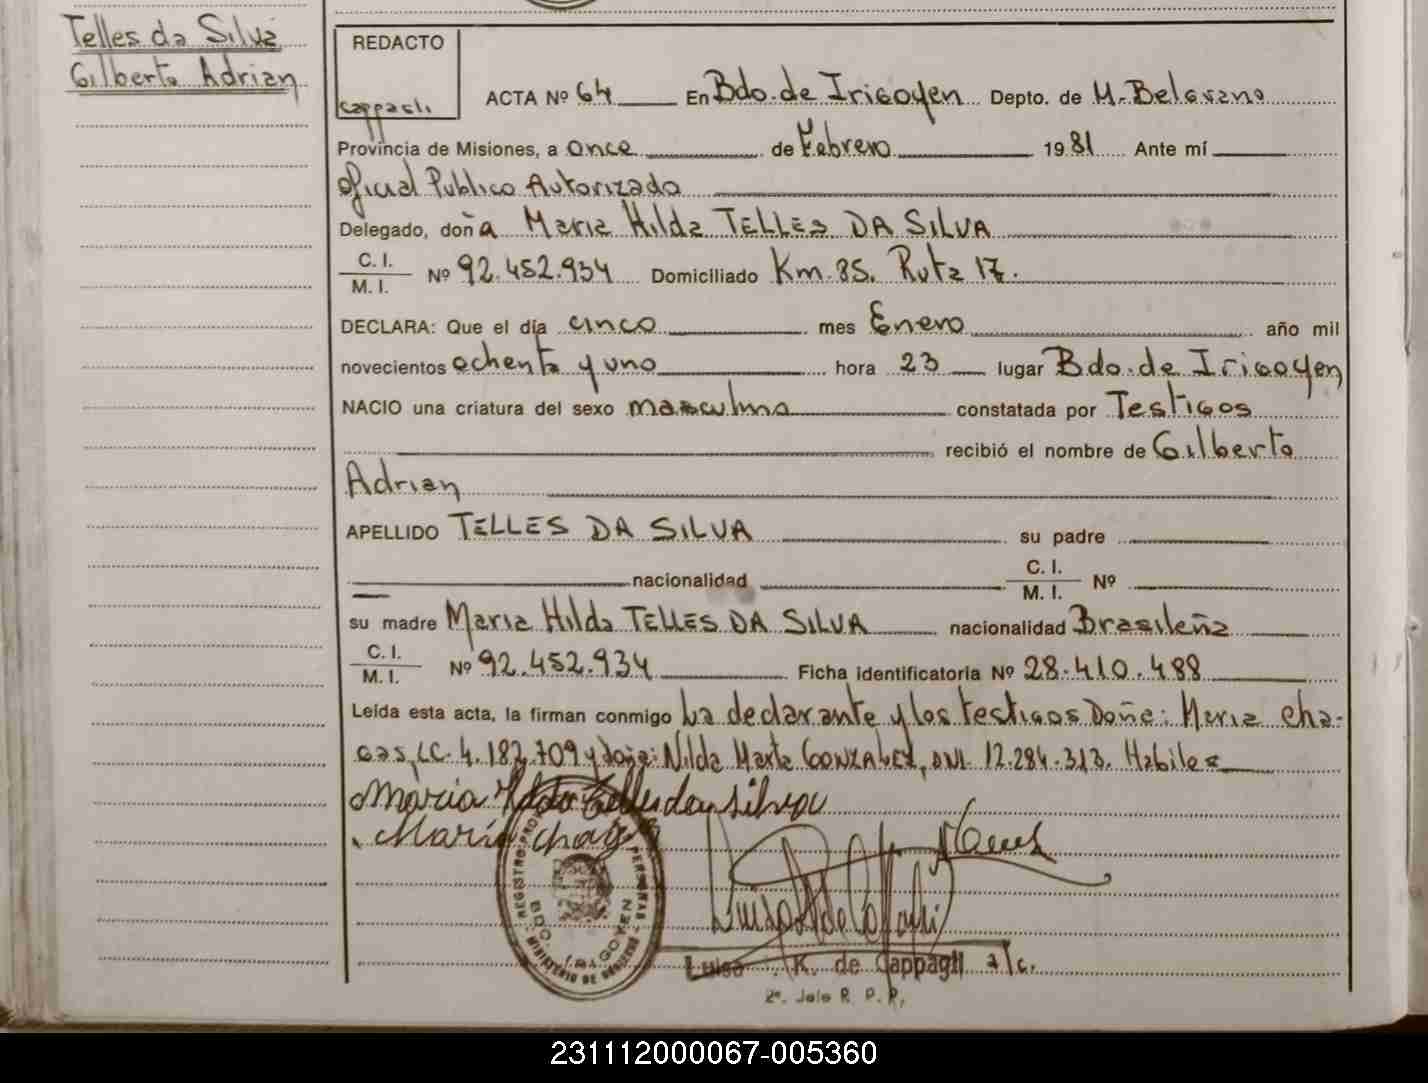 Telles da Silva
Gilberto Adrian
REDACTO
Cappagli
ACTA Nº 64 En Bdo. de Irigoyen Depto. de M. Belgrano
Provincia de Misiones, a once de Febrero 1981 Ante mí
Oficial Publico Autorizado
Delegado, doña Maria Hilda TELLES DA SILVA
C. I.
M. I. Nº 92.452.934 Domiciliado Km. 85. Ruta 17.
DECLARA: Que el día cinco mes Enero año mil
novecientos ochenta y uno hora 23 lugar Bdo. de Irigoyen
NACIO una criatura del sexo masculino constatada por Testigos
recibió el nombre de Gilberto
Adrian
APELLIDO TELLES DA SILVA su padre
nacionalidad C. I. M. I. Nº
su madre Maria Hilda TELLES DA SILVA nacionalidad Brasileña
C. I.
M. I. Nº 92.452.934 Ficha identificatoria Nº 28.410.488
Leída esta acta, la firman conmigo La declarante y los testigos Doña: Maria Cha-
gas, LC. 4.182.709 y doña: Nilda Marta GONZALEZ, DNI. 12.284.313. Habiles
Maria Hilda Telles da Silva
Maria Chagas
REGISTRO PERSONAS
BDO. IRIGOYEN
MINISTERIO DE GOBIERNO
Luisa K. de Cappagli a/c.
2º. Jefe R. P. P.
231112000067-005360